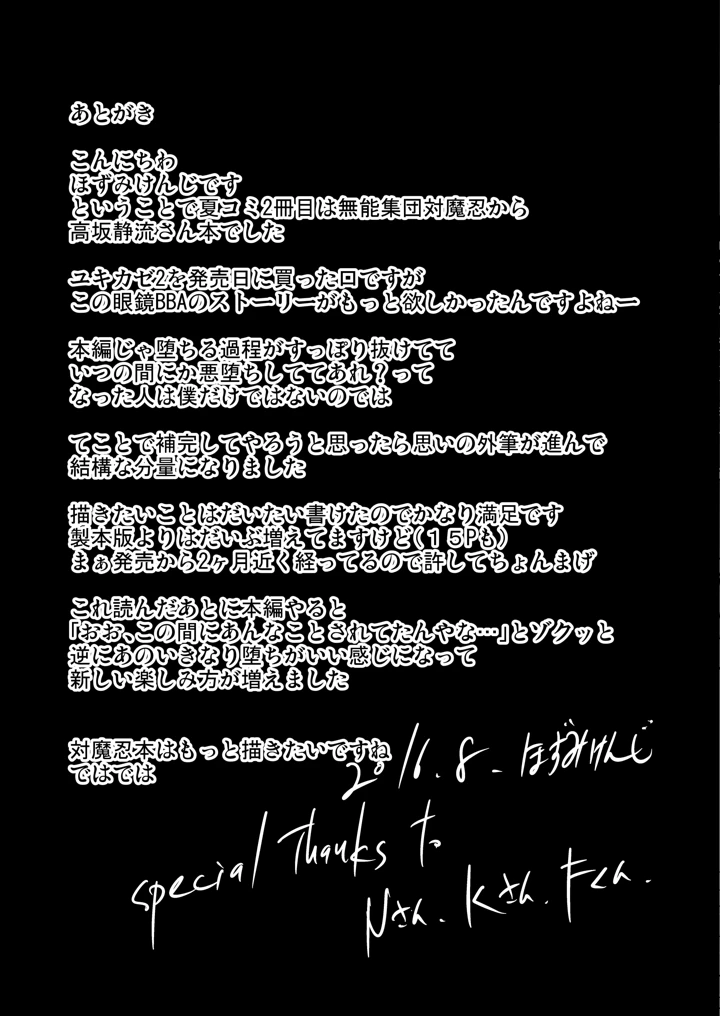 あとがき
こんにちわ
ほずみけんじです
ということで夏コミ2冊目は無能集団対魔忍から
高坂静流さん本でした
ユキカゼ2を発売日に買った口ですが
この眼鏡BBAのストーリーがもっと欲しかったんですよねー
本編じゃ堕ちる過程がすっぽり抜けてて
いつの間にか悪堕ちしててあれ？って
なった人は僕だけではないのでは
てことで補完してやろうと思ったら思いの外筆が進んで
結構な分量になりました
描きたいことはだいたい書けたのでかなり満足です
製本版よりはだいぶ増えてますけど（１５Pも）
まぁ発売から2ヶ月近く経ってるので許してちょんまげ
これ読んだあとに本編やると
「おお、この間にあんなことされてたんやな…」とゾクッと
逆にあのいきなり堕ちがいい感じになって
新しい楽しみ方が増えました
対魔忍本はもっと描きたいですね
ではでは
2016.8. ほずみけんじ
special thanks to
Nさん. Kさん. Fくん.